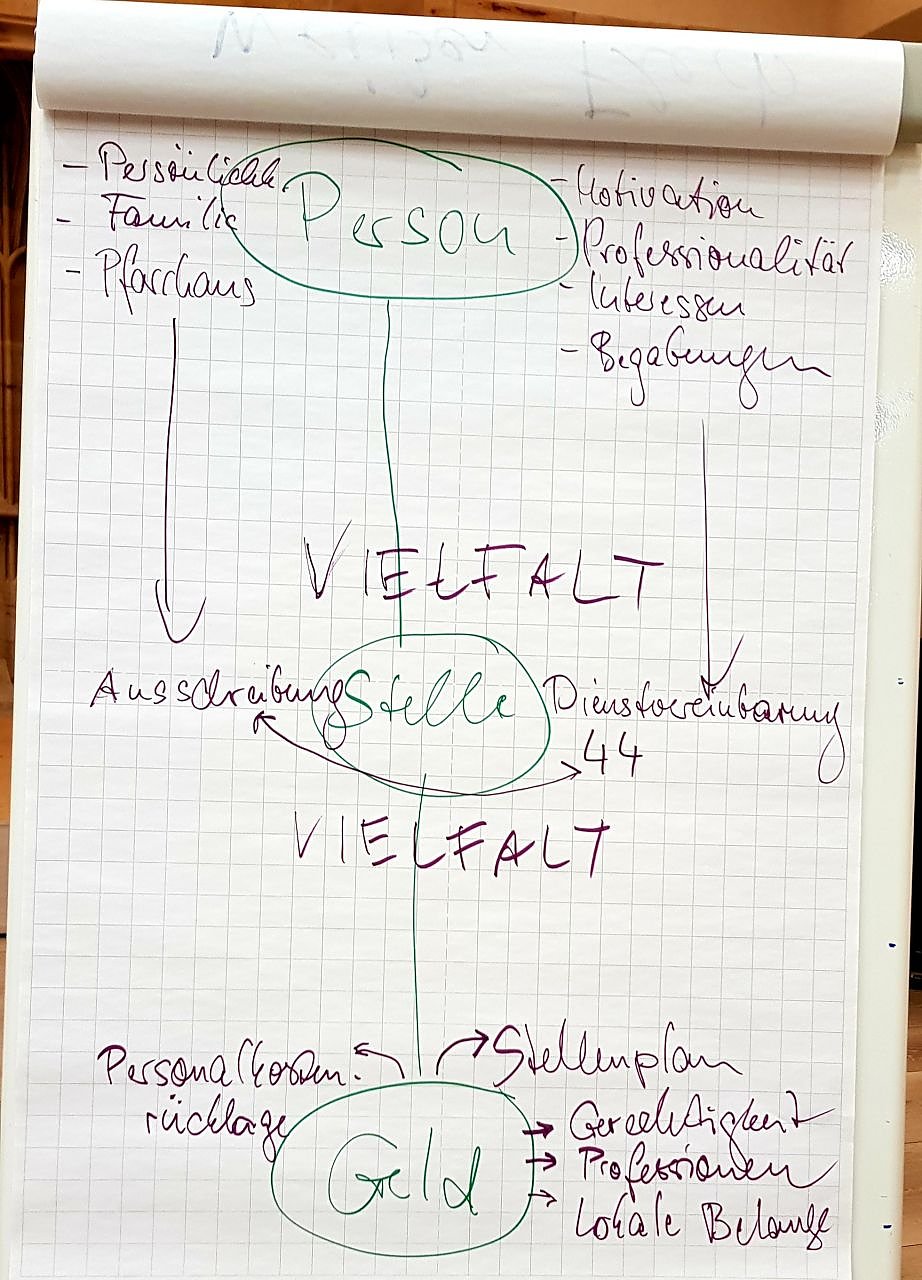 - Persönlichk.
- Familie
- Pfarrhaus
Person
- Motivation
- Professionalität
- Interessen
- Begabungen
VIELFALT
Ausschreibung
Stelle
Dienstvereinbarung
44
VIELFALT
Personalkosten-
rücklage
Stellenplan
Geld
Gerechtigkeit
Professionen
Lokale Belange